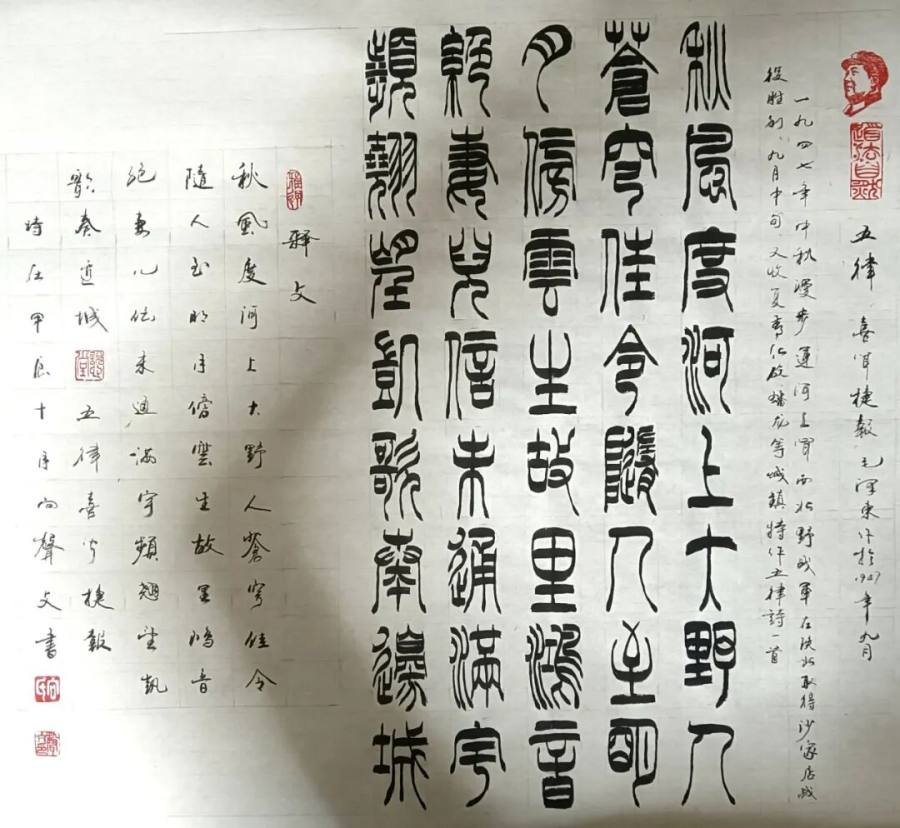 道法自然
五律.喜闻捷報 毛泽東作於1947年九月
一九四七年中秋漫步運河上闻西北野战軍在陕北取得沙家店战
役胜利、九月中旬又收复青化砭蟠龙等城鎮特作五律詩一首
秋風度河上大野入
蒼穹佳令隨人至明
月傍雲生故里鴻音
絕妻兒信未通滿宇
頻翹望凱歌奏邊城
釋文
秋風度河上大野入蒼穹佳令
隨人至明月傍雲生故里鴻音
絕妻儿信未通满宇頻翘望凱
歌奏边城 五律喜闻捷報
時在甲辰十月向聲文書